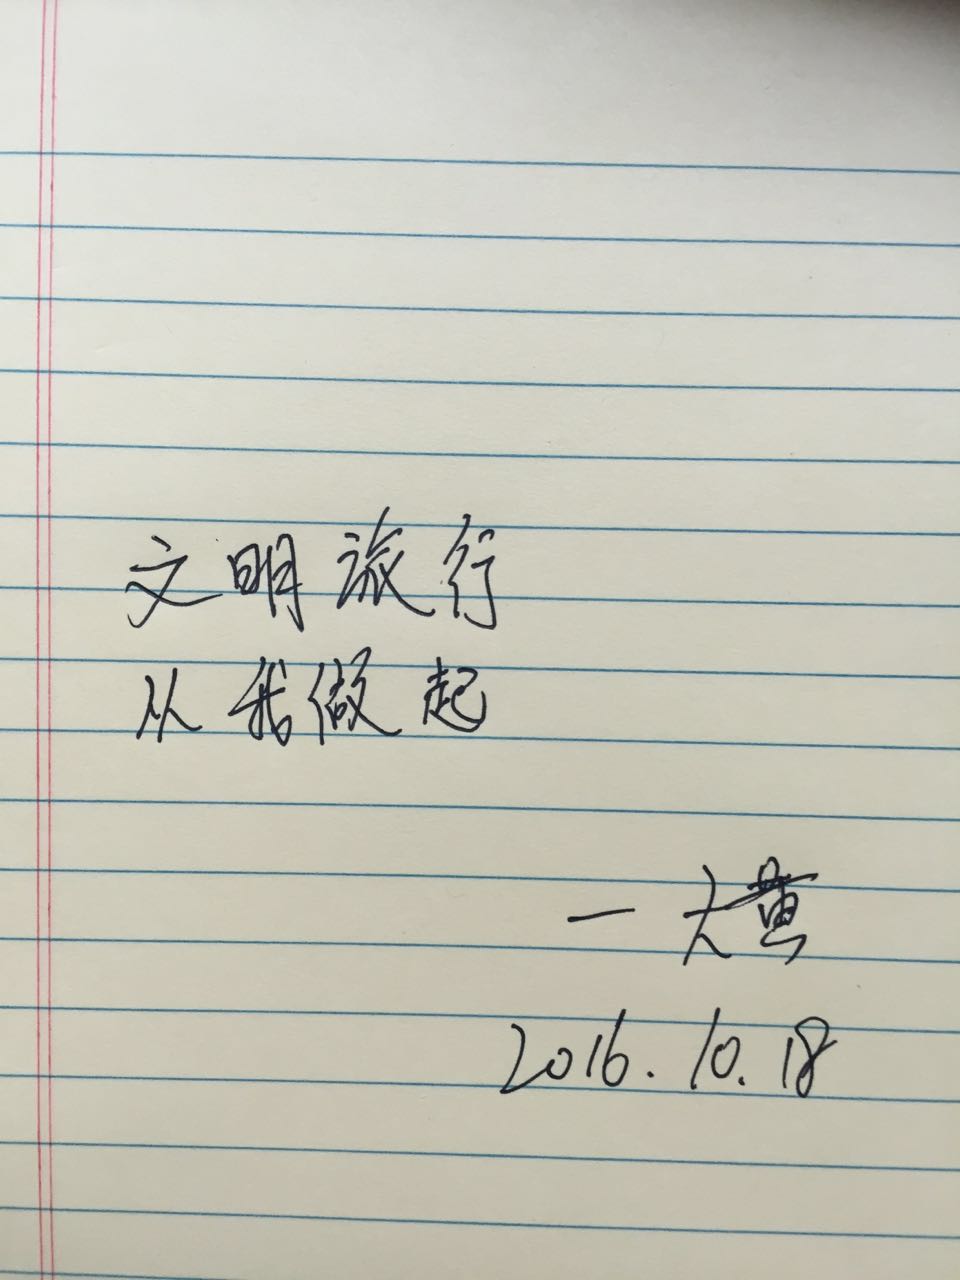 文明旅行
从我做起
一大黄
2016.10.18